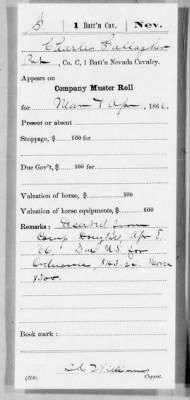 G | 1 Batt'n Cav. | Nev.
Charles Gallagher
Pvt, Co. C, 1 Batt'n Nevada Cavalry.
Appears on
Company Muster Roll
for Mar & Apr, 1866.
Present or absent
Stoppage, $ 100 for
Due Gov't, $ 100 for
Valuation of horse, $ 100
Valuation of horse equipments, $ 100
Remarks: Deserted from
Camp Douglas, Apr 8,
66. Due U.S. for
Ordnance, $143.
Book mark:
Williams
(358) Copyist.